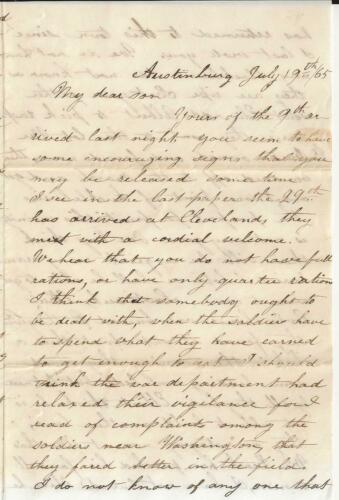 Austenburg July 19th /65
My dear son
Yours of the 9th ar
rived last night you seem to have
some encouraging signs that you
may be released some time
I see in the last paper the 29th
has arrived at Cleveland, they
met with a cordial welcome.
We hear that you do not have full
rations, or have only quarter rations
I think that somebody ought to
be dealt with, when the soldiers have
to spend what they have earned
to get enough to eat I should
think the war department had
relaxed their vigilance for I
read of complaints among the
soldiers near Washington, that
they fared better in the field.
I do not know of any one that